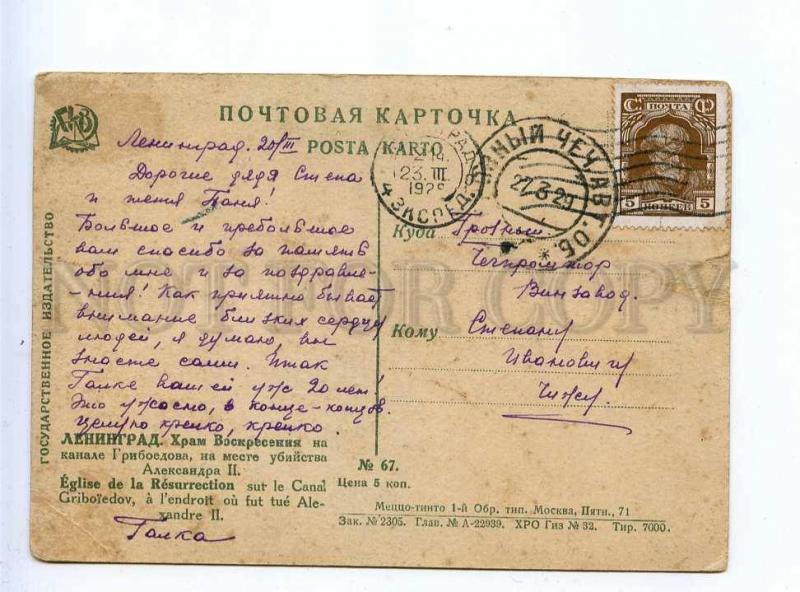 ПОЧТОВАЯ КАРТОЧКА
POSTA KARTO
Ленинград. 20/III
Дорогие дядя Стёпа
и тётя Паня!
Большое и пребольшое
вам спасибо за память
обо мне и за поздравле-
-ния! Как приятно бывает
внимание близких сердцу
людей, я думаю, вы
знаете сами. Итак
Галке вашей уж 20 лет!
Это ужасно, в конце-концов.
Целую крепко, крепко.
ЛЕНИНГРАД. Храм Воскресения на
канале Грибоедова, на месте убийства
Александра II.
Église de la Résurrection sur le Canal
Griboïedov, à l'endroit où fut tué Ale-
xandre II.
Галка
ГОСУДАРСТВЕННОЕ ИЗДАТЕЛЬСТВО
23. III.
1929
4 ЭКСПЕД.
ЧЕЧ. АВТ. ОБ.
27.3.29
ПОЧТА
5 КОПЕЕК 5
Куда Грозный
Чечпромторг
Винзавод.
Кому Степану
Ивановичу
Чижу.
№ 67.
Цена 5 коп.
Меццо-тинто 1-й Обр. тип. Москва, Пятн., 71
Зак. № 2305. Глав. № А-22939. ХРО Гиз № 32. Тир. 7000.
NOT FOR COPY